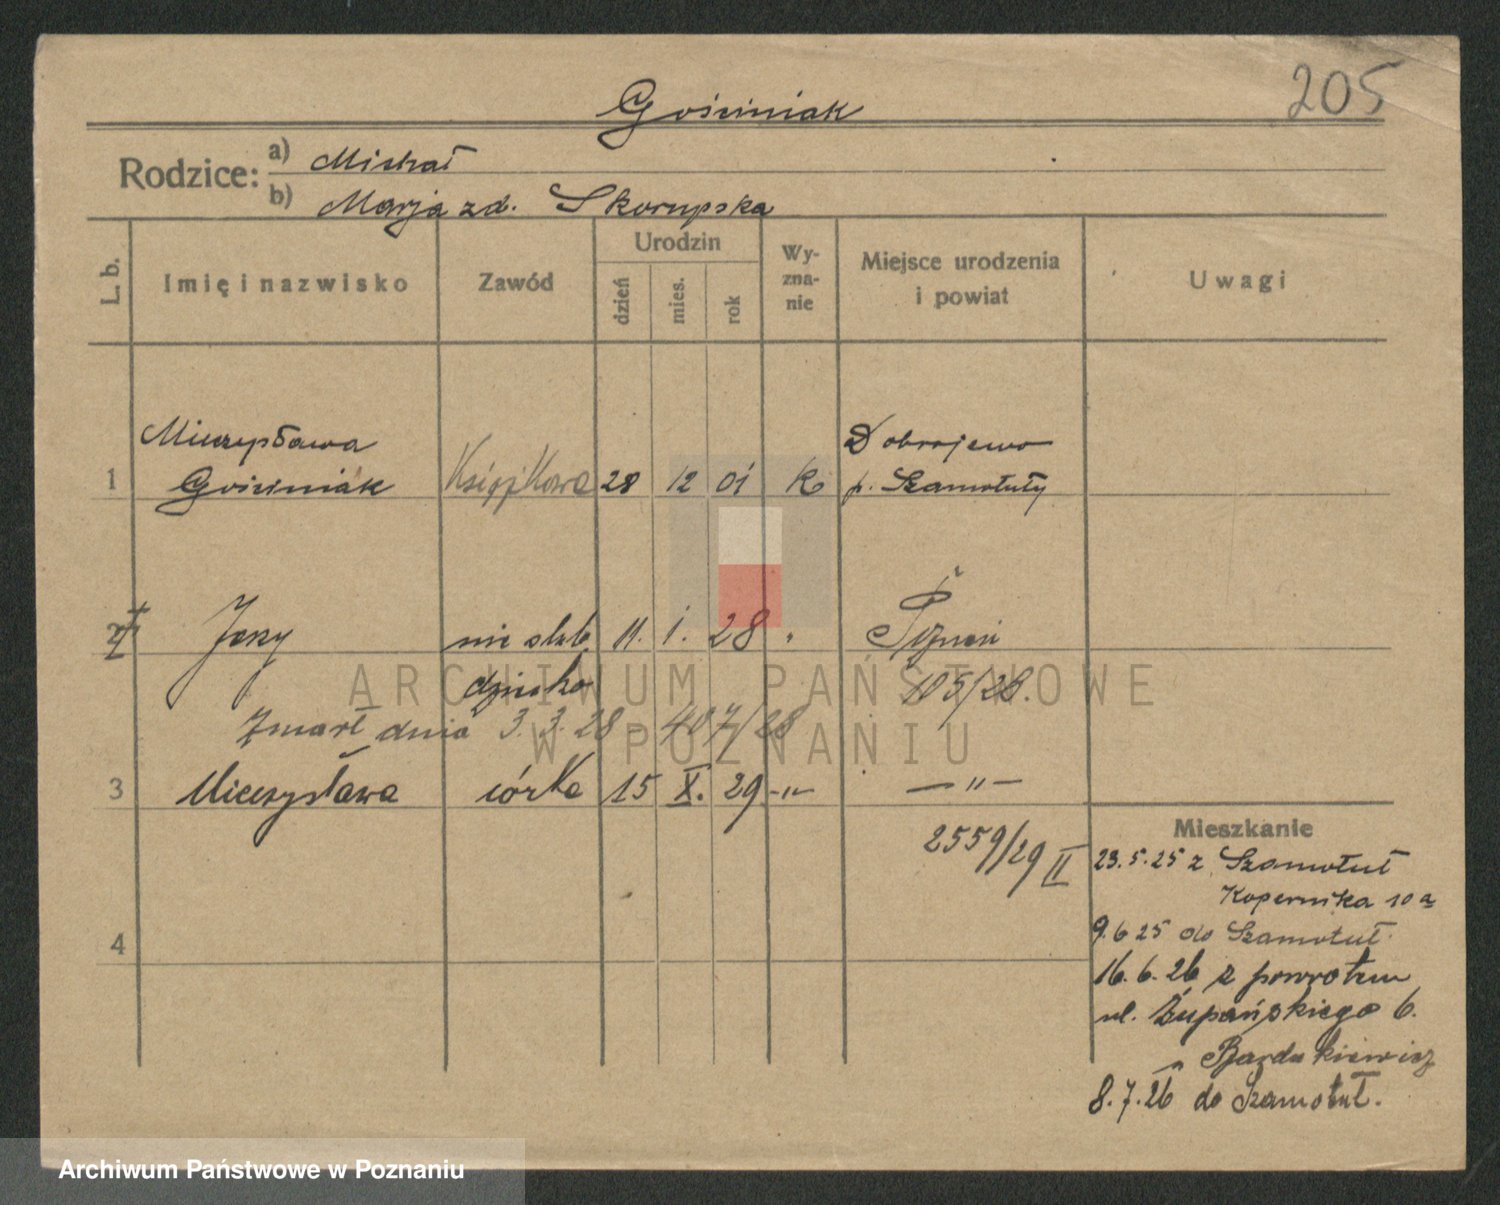 205
Gościniak
Rodzice:
a) Michał
b) Marja zd. Skorupska
L. b.
Imię i nazwisko
Zawód
Urodzin
dzień
mies.
rok
Wy-
zna-
nie
Miejsce urodzenia
i powiat
Uwagi
Mieczysława Dobrojewo
1 Gościniak Książkowa 28 12 01 k p. Szamotuły
2 Jerzy nie ślub. 11. 1. 28 " Poznań
dziecko 105/28.
Zmarł dnia 3.3.28 - 407/28
3 Mieczysława córka 15 X. 29 -"- -"-
2559/29 II
4
Mieszkanie
23.5.25 z Szamotuł
Kopernika 10a
9.6 25 do Szamotuł.
16.6.26 z powrotem
ul. Żupańskiego 6.
Bardukiewicz
8.7.26 do Szamotuł.
ARCHIWUM PAŃSTWOWE
W POZNANIU
Archiwum Państwowe w Poznaniu